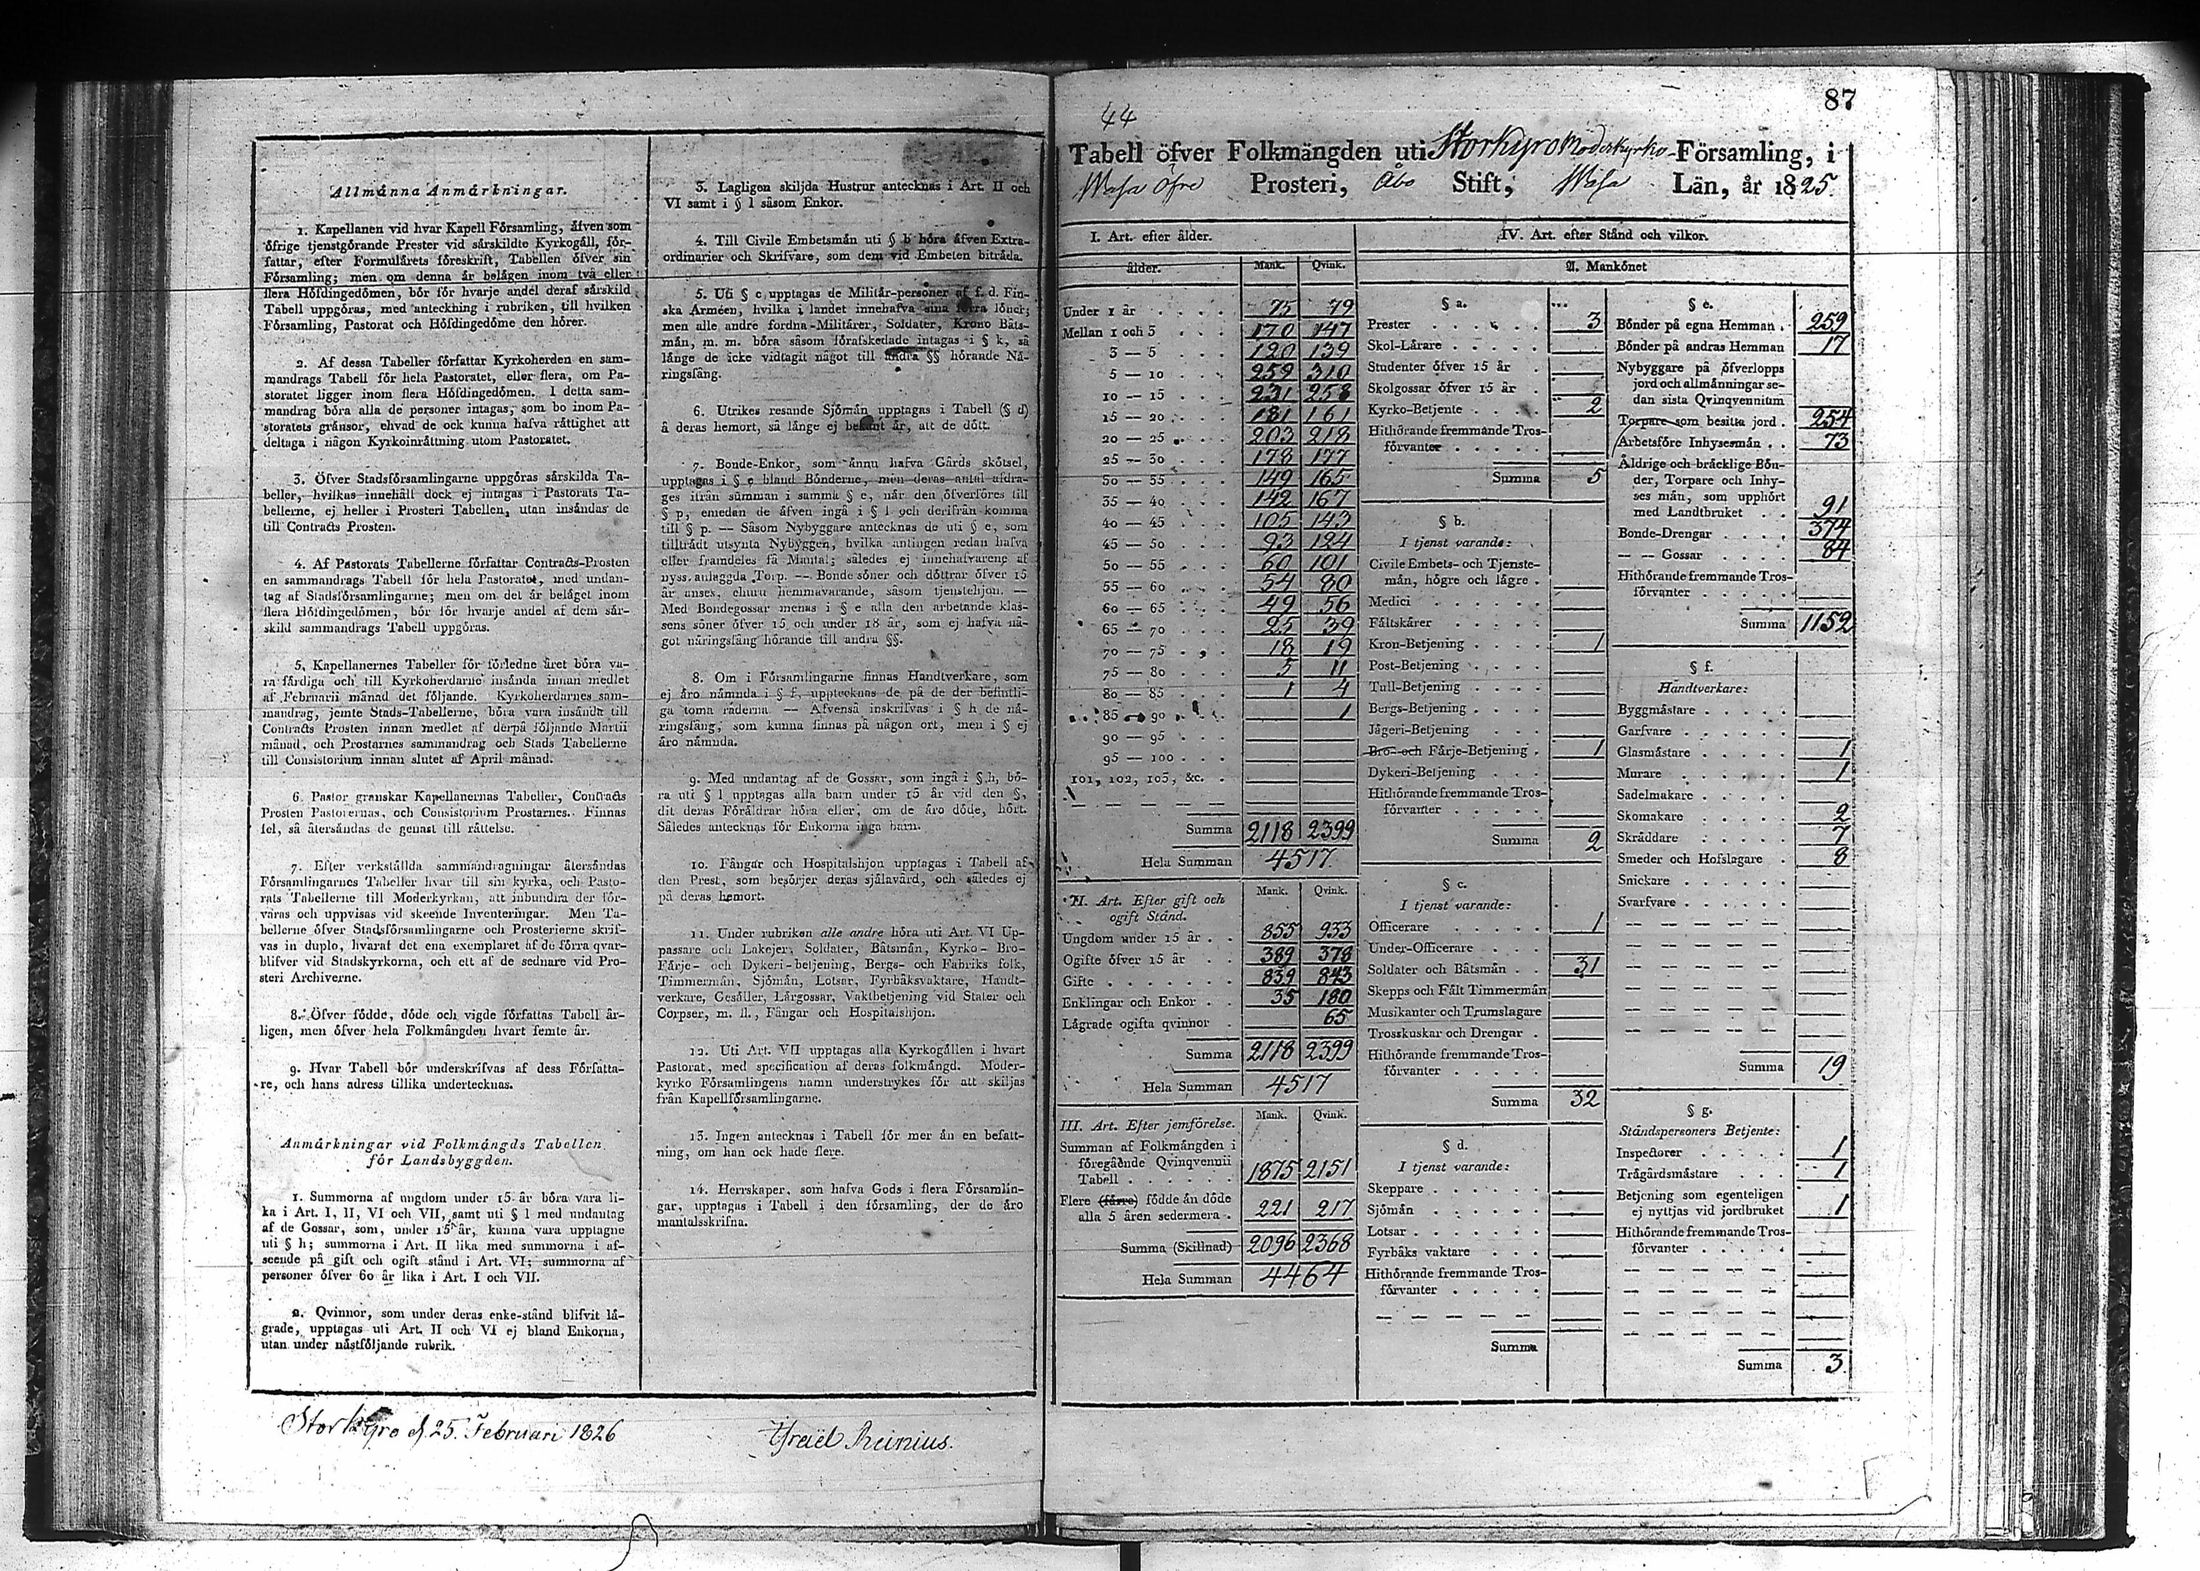 Allmánna Anmárkningar.
1. Kapellanen vid hvar Kapell Fórsamling, áfven som
ófrige tjenstgórande Prester vid sårskildte Kyrkogåll, fór-
fattar, efter Formulårets fóreskrift, Tabellen ófver sin
Fórsamling; men om denna år belågen inom två eller
flera Hófdingedómen, bór fór hvarje andel deraf sårskild
Tabell uppgóras, med anteckning i rubriken, till hvilken
Fórsamling, Pastorat och Hófdingedóme den hórer.
2. Af dessa Tabeller fórfattar Kyrkoherden en sam-
mandrags Tabell fór hela Pastoratet, eller flera, om Pa-
storatet ligger inom flera Hófdingedómen. I detta sam-
mandrag bóra alla de personer intagas, som bo inom Pa-
storatets grånsor, ehvad de ock kunna hafva råttighet att
deltaga i någon Kyrkoinråttning utom Pastoratet.
3. Öfver Stadsfórsamlingarne uppgóras sårskilda Ta-
beller, hvilkas innehåll dock ej intages i Pastorats Ta-
bellerne, ej heller i Prosteri Tabellen, utan insåndas de
till Contracts Prosten.
4. Af Pastorats Tabellerne fórfattar Contracts-Prosten
en sammandrags Tabell fór hela Pastoratet, med undan-
tag af Stadsfórsamlingarne; men om det år belåget inom
flera Hófdingedómen, bór fór hvarje andel af dem sår-
skild sammandrags Tabell uppgóras.
5. Kapellanernes Tabeller fór fórledne året bóra va-
ra fårdiga och till Kyrkoherdarne insånda innan medlet
af Februarii månad det fóljande. Kyrkoherdarnes sam-
mandrag, jemte Stads-Tabellerne, bóra vara insånde till
Contracts Prosten innan medlet af derpå fóljande Martii
månad, och Prostarnes sammandrag och Stads Tabellerne
till Consistorium innan slutet af April månad.
6. Pastor granskar Kapellanernas Tabeller, Contracts
Prosten Pastorernas, och Consistorium Prostarnes. Finnas
fel, så återsåndas de genast till råttelse.
7. Efter verkstållda sammandragningar återsåndas
Fórsamlingarnes Tabeller hvar till sin kyrka, och Pasto-
rats Tabellerne till Moderkyrkan, att inbundna der fór-
varas och uppvisas vid skeende Inventeringar. Men Ta-
bellerne ófver Stadsfórsamlingarne och Prosterierne skrif-
vas in duplo, hvaraf det ena exemplaret af de fórra qvar-
blifver vid Stadskyrkorna, och ett af de sednare vid Pro-
steri Archiverne.
8. Öfver fódde, dóde och vigde fórfattas Tabell år-
ligen, men ófver hela Folkmångden hvart femte år.
9. Hvar Tabell bór underskrifvas af dess Fórfatta-
re, och hans adress tillika undertecknas.
Anmårkningar vid Folkmångds Tabellen
fór Landsbyggden.
1. Summorna af ungdom under 15 år bóra vara li-
ka i Art. I, II, VI och VII, samt uti § l med undantag
af de Gossar, som, under 15 år, kunna vara upptagne
uti § h; summorna i Art. II lika med summorna i af-
seende på gift och ogift stånd i Art. VI; summorna af
personer ófver 60 år lika i Art. I och VII.
2. Qvinnor, som under deras enke-stånd blifvit lå-
grade, upptagas uti Art. II och VI ej bland Enkorna,
utan under nåstfóljande rubrik.
3. Lagligen skiljda Hustrur antecknas i Art. II och
VI samt i § l såsom Enkor.
4. Till Civile Embetsmån uti § b bóra åfven Extra-
ordinarier och Skrifvare, som dem vid Embeten bitråda.
5. Uti § c upptagas de Militår-personer af f. d. Fin-
ska Arméen, hvilka i landet innehafva sina fórra lóner;
men alle andre fordna Militårer, Soldater, Krono Båts-
mån, m. m. bóra såsom fórafskedade intagas i § k, så
långe de icke vidtagit något till andra §§ hórande Nå-
ringsfång.
6. Utrikes resande Sjómån upptagas i Tabell (§ d)
å deras hemort, så långe ej bekant år, att de dótt.
7. Bonde-Enkor, som ånnu hafva Gårds skótsel,
upptagas i § e bland Bónderne, men deras antal afdra-
ges ifrån summan i samma § e, når den ófverfóres till
§ p, emedan de åfven ingå i § l och derifrån komma
till § p. — Såsom Nybyggare antecknas de uti § e, som
tilltrådt utsynta Nybyggen, hvilka antingen redan hafva
eller framdeles få Mantal; således ej innehafvarene af
nyss anlaggda Torp. — Bonde sóner och dóttrar ófver 15
år anses, ehuru hemmavarande, såsom tjenstehjon. —
Med Bondegossar menas i § e alla den arbetande klas-
sens sóner ófver 15 och under 18 år, som ej hafva nå-
got nåringsfång hórande till andra §§.
8. Om i Fórsamlingarne finnas Handtverkare, som
ej åro nåmnda i § f, uppteckns de på de der befintli-
ga toma raderna — Åfvenså inskrifvas i § h de nå-
ringsfång, som kunna finnas på någon ort, men i § ej
åro nåmnda.
9. Med undantag af de Gossar, som ingå i § h, bó-
ra uti § l upptagas alla barn under 15 år vid den §,
dit deras Fóråldrar hóra eller, om de åro dóde, hórt.
Således antecknas fór Enkorna inga barn.
10. Fångar och Hospitalshjon upptagas i Tabell af
den Prest, som besórjer deras sjålavård, och således ej
på deras hemort.
11. Under rubriken alle andre hóra uti Art. VI Up-
passare och Lakejer, Soldater, Båtsmån, Kyrko- Bro-
Fårje- och Dykeri-betjening, Bergs- och Fabriks folk,
Timmermån, Sjómån, Lotsar, Fyrbåksvaktare, Handt-
verkare, Gesåller, Lårgossar, Vaktbetjening vid Stater och
Corpser, m. fl., Fångar och Hospitalshjon.
12. Uti Art. VII upptagas alla Kyrkogållen i hvart
Pastorat, med specification af deras folkmångd. Moder-
kyrko Fórsamlingens namn understrykes fór att skiljas
från Kapellfórsamlingarne.
13. Ingen antecknas i Tabell fór mer ån en befatt-
ning, om han ock hade flere.
14. Herrskaper, som hafva Gods i flera Fórsamlin-
gar, upptagas i Tabell i den fórsamling, der de åro
mantalsskrifna.
Storkyro d. 25. Februari 1826
Isreïel Reinius.
87
44
Tabell ófver Folkmängden uti Storkyro Moderkyrko-Församling, i
Wasa Öfre Prosteri, Åbo Stift, Wasa Län, år 1825.
I. Art. efter ålder.
ålder. Mank. Qvink.
Under 1 år 75 79
Mellan 1 och 3 170 147
3 — 5 120 139
5 — 10 259 310
10 — 15 231 258
15 — 20 181 161
20 — 25 203 218
25 — 30 178 177
30 — 35 149 165
35 — 40 142 167
40 — 45 105 143
45 — 50 93 124
50 — 55 60 101
55 — 60 54 80
60 — 65 49 56
65 — 70 25 39
70 — 75 18 19
75 — 80 5 11
80 — 85 1 4
85 — 90 1
90 — 95
95 — 100
101, 102, 103, &c.
Summa 2118 2399
Hela Summan 4517
II. Art. Efter gift och
ogift Stånd. Mank. Qvink.
Ungdom under 15 år 855 933
Ogifte ófver 15 år 389 378
Gifte 839 843
Enklingar och Enkor 35 180
Lågrade ogifta qvinnor 65
Summa 2118 2399
Hela Summan 4517
III. Art. Efter jemfórelse. Mank. Qvink.
Summan af Folkmångden i
fóregående Qvinqvennii
Tabell 1875 2151
Flere (fårre) fódde ån dóde
alla 5 åren sedermera 221 217
Summa (Skillnad) 2096 2368
Hela Summan 4464
IV. Art. efter Stånd och vilkor.
A. Mankónet
§ a.
Prester 3
Skol-Lårare
Studenter ófver 15 år
Skolgossar ófver 15 år
Kyrko-Betjente 2
Hithórande fremmande Tros-
fórvanter
Summa 5
§ b.
I tjenst varande:
Civile Embets- och Tjenste-
mån, hógre och lågre
Medici
Fåltskårer
Kron-Betjening 1
Post-Betjening
Tull-Betjening
Bergs-Betjening
Jågeri-Betjening
Bro- och Fårje-Betjening 1
Dykeri-Betjening
Hithórande fremmande Tros-
fórvanter
Summa 2
§ c.
I tjenst varande:
Officerare 1
Under-Officerare
Soldater och Båtsmån 31
Skepps och Fålt Timmermån
Musikanter och Trumslagare
Trosskuskar och Drengar
Hithórande fremmande Tros-
fórvanter
Summa 32
§ d.
I tjenst varande:
Skeppare
Sjómån
Lotsar
Fyrbåks vaktare
Hithórande fremmande Tros-
fórvanter
Summa
§ e.
Bónder på egna Hemman 259
Bónder på andras Hemman 17
Nybyggare på ófverlopps
jord och allmånningar se-
dan sista Qvinqvennium
Torpare som besitta jord 254
Arbetsfóre Inhysesmån 73
Åldrige och bråcklige Bón-
der, Torpare och Inhy-
ses mån, som upphórt
med Landtbruket 91
Bonde-Drengar 374
— — Gossar 84
Hithórande fremmande Tros-
fórvanter
Summa 1152
§ f.
Håndtverkare:
Byggmåstare
Garfvare
Glasmåstare 1
Murare 1
Sadelmakare
Skomakare 2
Skråddare 7
Smeder och Hofslagare 8
Snickare
Svarfvare
Summa 19
§ g.
Ståndspersoners Betjente:
Inspectorer 1
Trågårdsmåstare 1
Betjening som egenteligen
ej nyttjas vid jordbruket 1
Hithórande fremmande Tros-
fórvanter
Summa 3